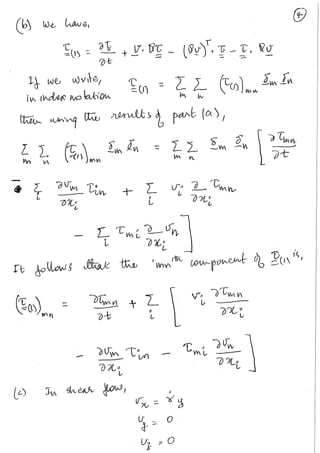 ④
(b) We have,
τ₍₁₎ = ∂τ/∂t + v·∇τ − (∇v)ᵀ·τ − τ·∇v
If we write, τ₍₁₎ = Σₘ Σₙ (τ₍₁₎)ₘₙ δₘ δₙ
in index notation
then using the results of part (a),
Σₘ Σₙ (τ₍₁₎)ₘₙ δₘ δₙ = Σₘ Σₙ δₘ δₙ [ ∂τₘₙ/∂t
− Σᵢ ∂vₘ/∂xᵢ τᵢₙ + Σᵢ vᵢ ∂/∂xᵢ τₘₙ
− Σᵢ τₘᵢ ∂/∂xᵢ vₙ ]
It follows that the 'mn'ᵗʰ component of τ₍₁₎ is,
(τ₍₁₎)ₘₙ = ∂τₘₙ/∂t + Σᵢ [ vᵢ ∂τₘₙ/∂xᵢ
− ∂vₘ/∂xᵢ τᵢₙ − τₘᵢ ∂vₙ/∂xᵢ ]
(c) In shear flow,
vₓ = γ̇ y
v_y = 0
v_z = 0